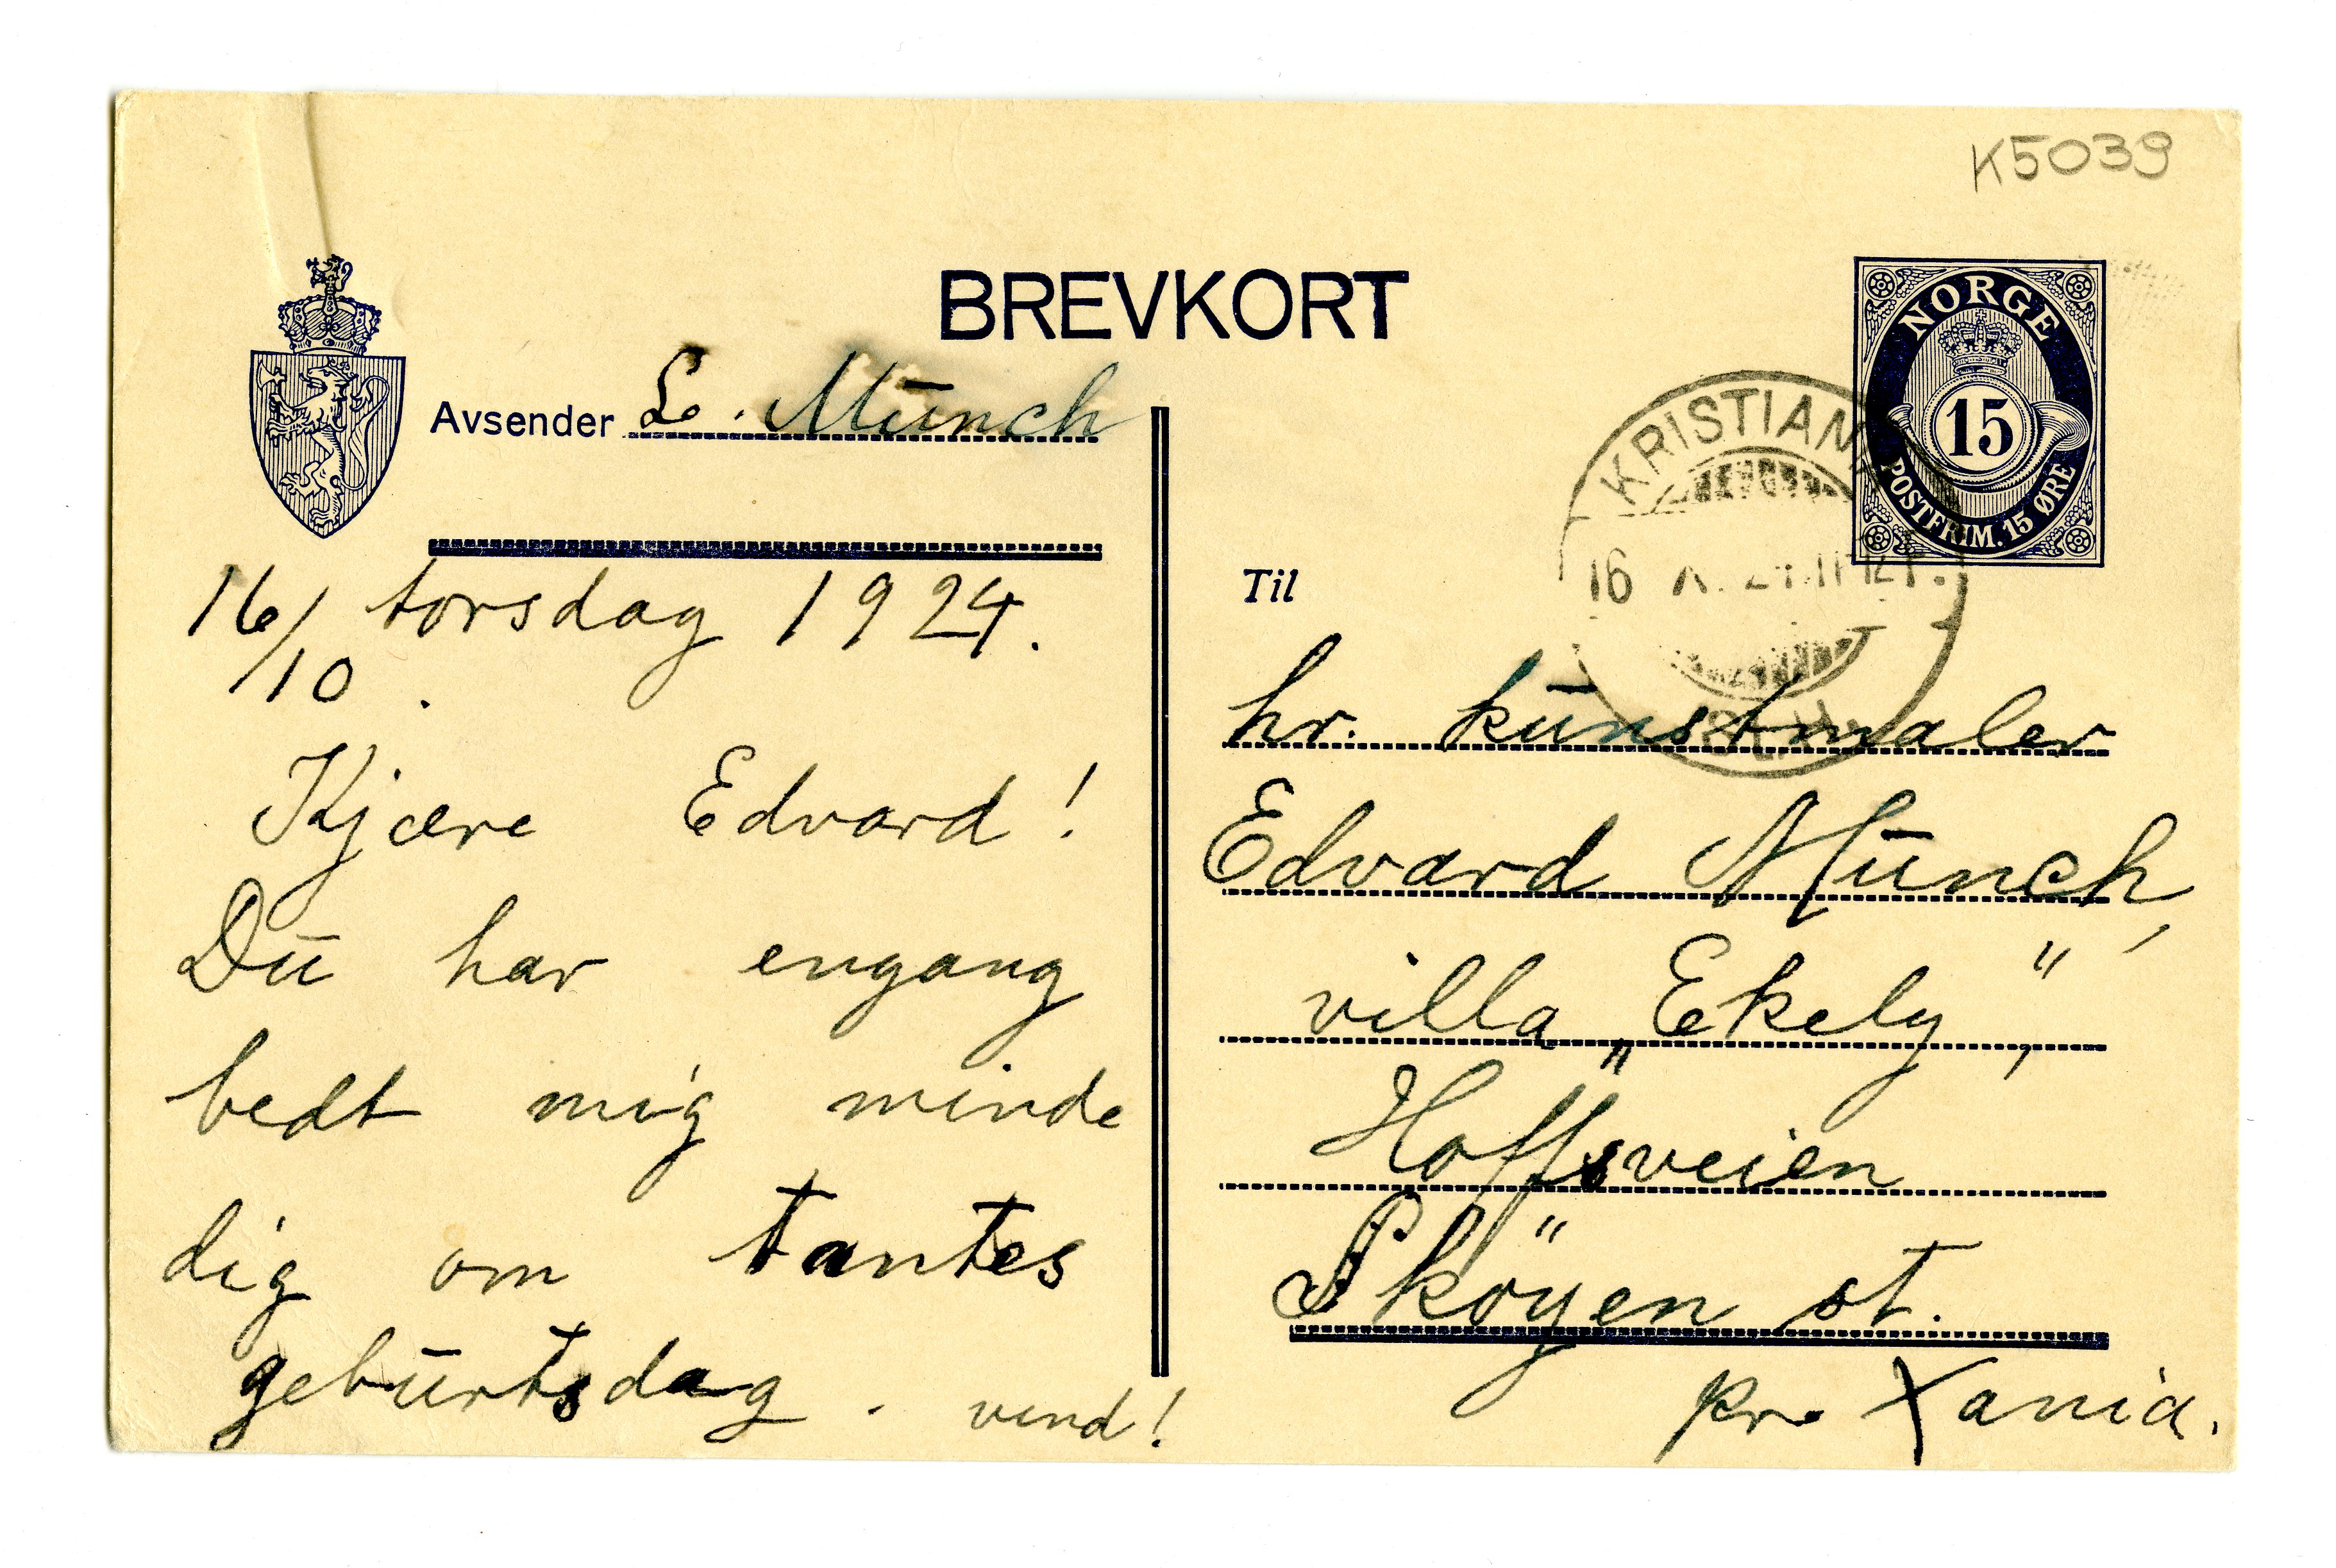 K5039
BREVKORT
NORGE
15
POSTFRIM. 15 ØRE
Avsender L. Münch
KRISTIANI
16 X. 24
16/10. torsdag 1924.
Kjære Edvard!
Dū har engang
bedt mig minde
dig om tantes
gebūrtsdag. vend!
Til
hr. kūnstmaler
Edvard Mūnch,
villa „Ekely",
Hoffsveien
Sköyen st.
pr. Xania.